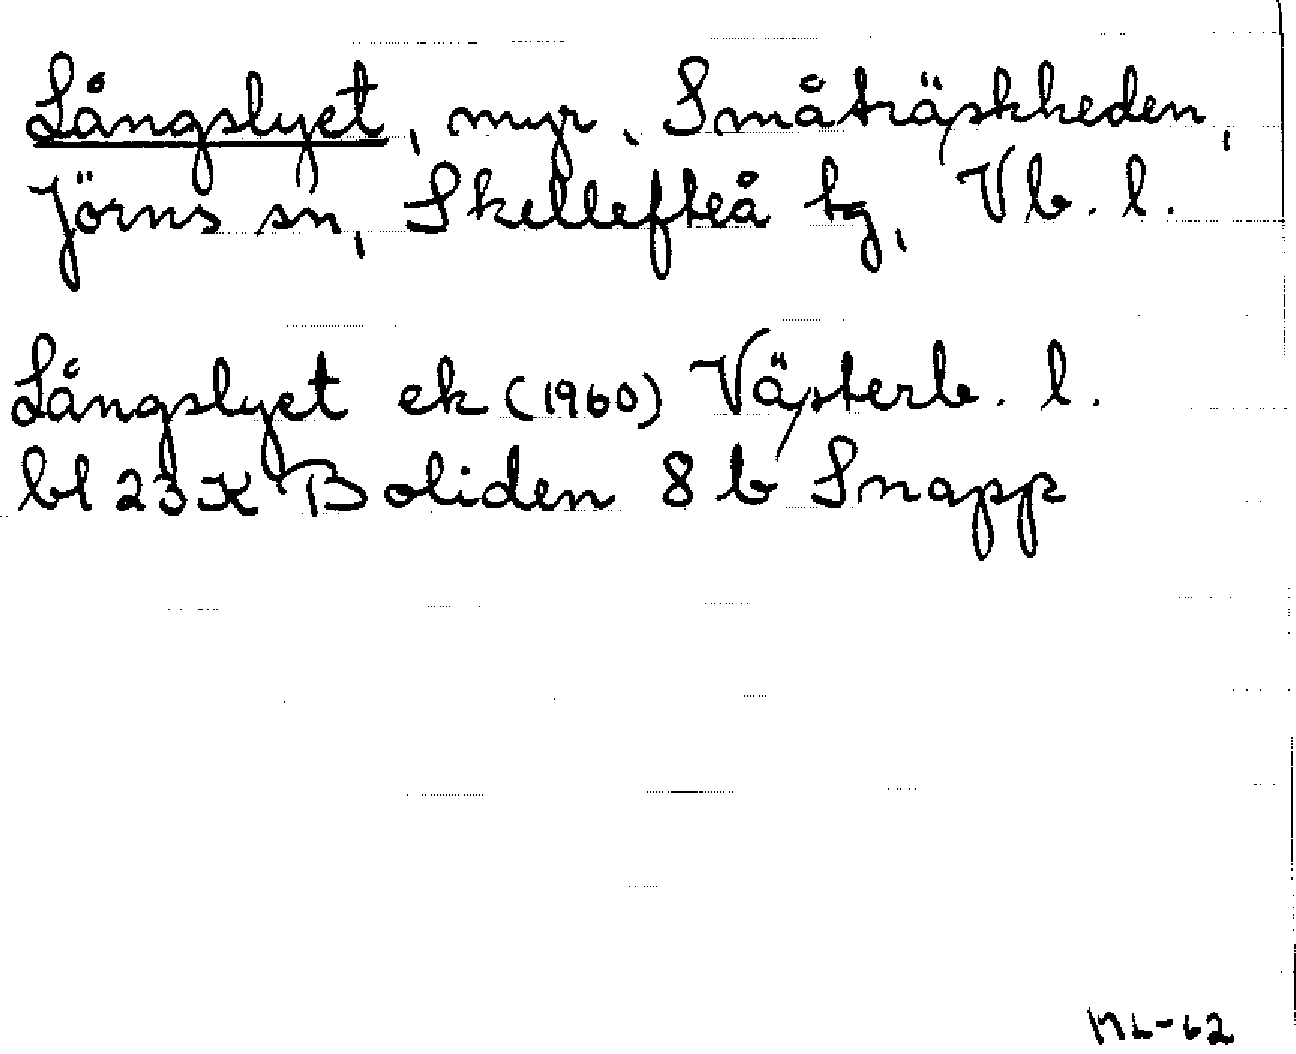 Långslyet, myr, Småträskheden,
Jörns sn, Skellefteå tg, Vb. l.
Långslyet ek (1960) Västerb. l.
bl 23 K Boliden 8 b Snapp